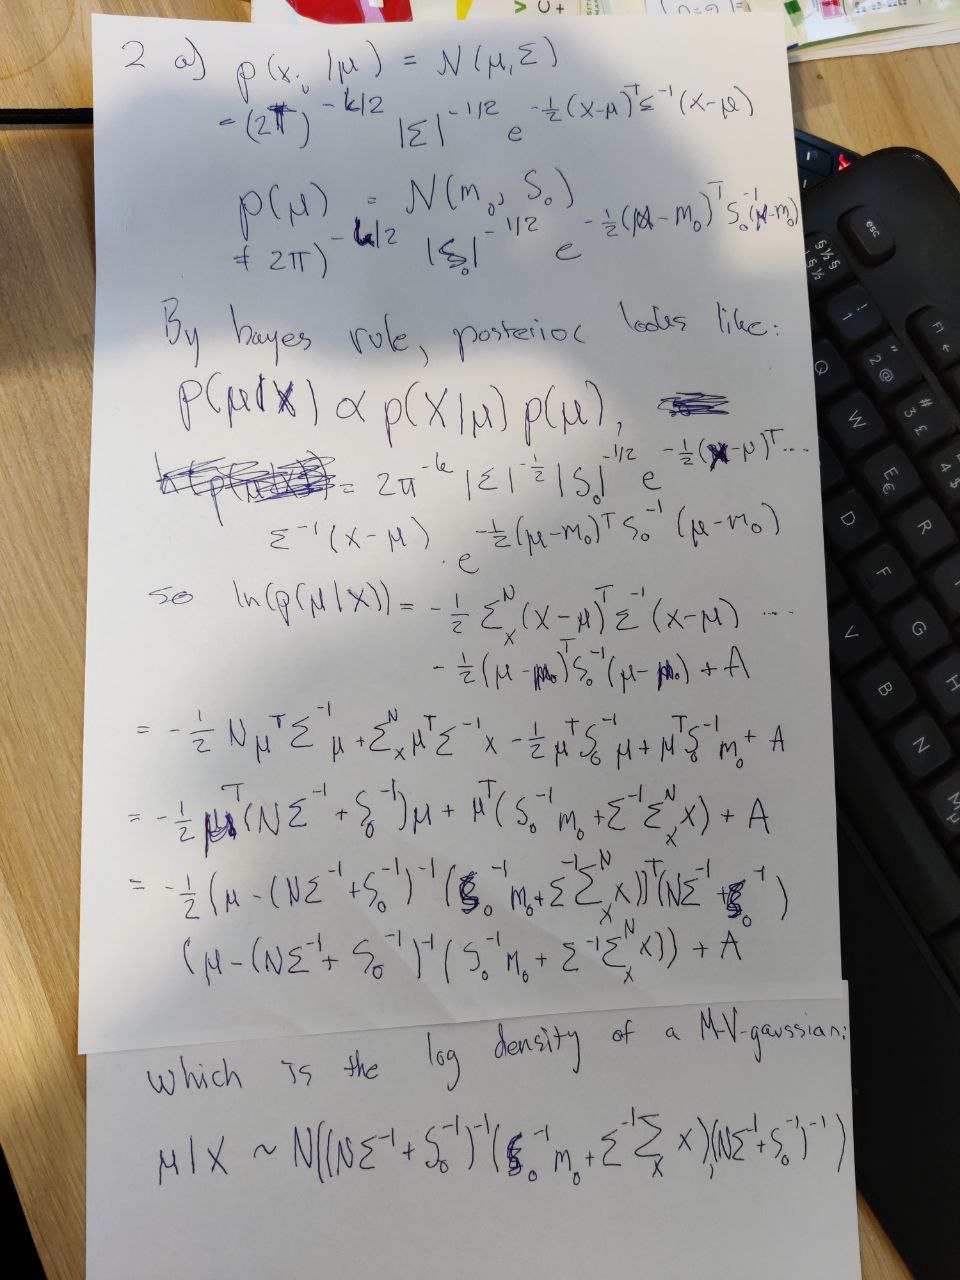 2 a) p(xᵢ|μ) = N(μ,Σ)
= (2π)^{-k/2} |Σ|^{-1/2} e^{-½(x-μ)ᵀΣ⁻¹(x-μ)}
p(μ) = N(m₀, S₀)
(2π)^{-k/2} |S₀|^{-1/2} e^{-½(μ-m₀)ᵀS₀⁻¹(μ-m₀)}
By bayes rule, posterior looks like:
p(μ|X) ∝ p(X|μ) p(μ),
= 2π^{-k} |Σ|^{-½} |S₀|^{-1/2} e^{-½(x-μ)ᵀ...
Σ⁻¹(x-μ) · e^{-½(μ-m₀)ᵀS₀⁻¹(μ-m₀)}
so ln(p(μ|X)) = -½ Σₓᴺ(x-μ)ᵀΣ⁻¹(x-μ) ...
-½(μ-m₀)ᵀS₀⁻¹(μ-m₀) + A
= -½ NμᵀΣ⁻¹μ + ΣₓᴺμᵀΣ⁻¹x - ½μᵀS₀⁻¹μ + μᵀS₀⁻¹m₀ + A
= -½ μᵀ(NΣ⁻¹ + S₀⁻¹)μ + μᵀ(S₀⁻¹m₀ + Σ⁻¹Σₓᴺx) + A
= -½(μ-(NΣ⁻¹+S₀⁻¹)⁻¹(S₀⁻¹m₀+Σ⁻¹Σₓᴺx))ᵀ(NΣ⁻¹+S₀⁻¹)
(μ-(NΣ⁻¹+S₀⁻¹)⁻¹(S₀⁻¹m₀+Σ⁻¹Σₓᴺx)) + A
which is the log density of a M-V-gaussian:
μ|X ~ N((NΣ⁻¹+S₀⁻¹)⁻¹(S₀⁻¹m₀+Σ⁻¹Σₓx),(NΣ⁻¹+S₀⁻¹)⁻¹)
esc
§ ½ §
§ ½
!
1
F1
"
2 @
#
3 £
4 $
Q
W
E €
R
D
F
G
H
V
B
N
M
μ